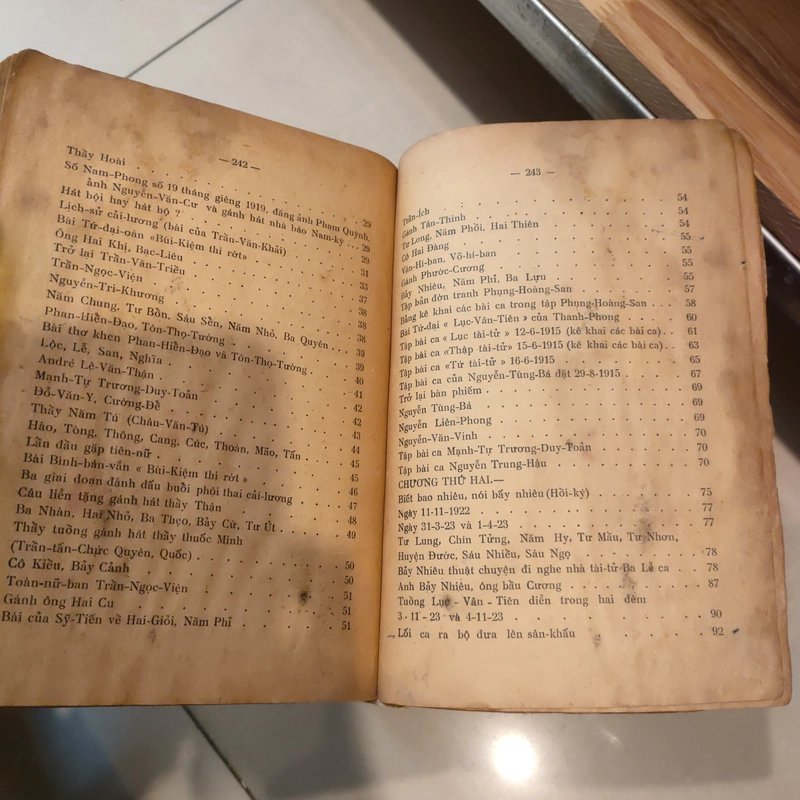 — 242 —
Thầy Hoài . . . . . . . . . . . 29
Số Nam-Phong số 19 tháng giêng 1919, đăng ảnh Phạm Quỳnh,
ảnh Nguyễn-Văn-Cư và gánh hát nhà báo Nam-kỳ . . . 29
Hát bội hay hát bộ ? . . . . . . . . 29
Lịch-sử cải-lương (bài của Trần-Văn-Khải) . . . 31
Bài Tứ-đại-oán «Bùi-Kiệm thi rớt» . . . . 33
Ông Hai Khị, Bạc-Liêu . . . . . . . 37
Trở lại Trần-Văn-Triều . . . . . . . 38
Trần-Ngọc-Viện . . . . . . . . . 38
Nguyễn-Tri-Khương . . . . . . . . 38
Năm Chung, Tư Bồn, Sáu Sền, Năm Nhỏ, Ba Quyên . . . 39
Phan-Hiển-Đạo, Tôn-Thọ-Tường . . . . . 39
Bài thơ khen Phan-Hiển-Đạo và Tôn-Thọ-Tường . . . 40
Lộc, Lễ, San, Nghĩa . . . . . . . . 41
André Lê-Văn-Thận . . . . . . . . 42
Mạnh-Tự Trương-Duy-Toản . . . . . . 42
Đỗ-Văn-Y, Cường-Để . . . . . . . . 43
Thầy Năm Tú (Châu-Văn-Tú) . . . . . . 44
Hào, Tòng, Thông, Cang, Cúc, Thoàn, Mão, Tấn . . . 45
Lần đầu gặp tiên-nữ . . . . . . . . 45
Bài Bình-bán-vắn « Bùi-Kiệm thi rớt » . . . . 46
Ba giai đoạn đánh dấu buổi phôi thai cải-lương . . . 47
Câu liễn tặng gánh hát thầy Thận . . . . . 48
Ba Nhàn, Hai Nhỏ, Ba Thẹo, Bảy Cừ, Tư Út . . . 49
Thầy tuồng gánh hát thầy thuốc Minh
(Trần-tấn-Chức Quyên, Quốc) . . . . . 50
Cô Kiều, Bảy Cảnh . . . . . . . . 50
Toàn-nữ-ban Trần-Ngọc-Viện . . . . . . 51
Gánh ông Hai Cu . . . . . . . . . 51
Bài của Sỹ-Tiến về Hai-Giỏi, Năm Phỉ . . . . 51
— 243 —
Trần-Ích . . . . . . . . . . . 54
Gánh Tân-Thinh . . . . . . . . . 54
Tư Long, Năm Phồi, Hai Thiên . . . . . 54
Cô Hai Đàng . . . . . . . . . . 55
Văn-Hi-ban, Võ-hi-ban . . . . . . . 55
Gánh Phước-Cương . . . . . . . . 55
Bảy Nhiêu, Năm Phỉ, Ba Lựu . . . . . 55
Tập bản đờn tranh Phụng-Hoàng-San . . . . 57
Bảng kê khai các bài ca trong tập Phụng-Hoàng-San . . . 58
Bài Tứ-đại « Lục-Vân-Tiên » của Thanh-Phong . . . 60
Tập bài ca « Lục tài-tử » 12-6-1915 (kê khai các bài ca) . 61
Tập bài ca «Thập tài-tử» 15-6-1915 (kê khai các bài ca) . 63
Tập bài ca «Tứ tài-tử» 16-6-1915 . . . . . 65
Tập bài ca của Nguyễn-Tùng-Bá đặt 29-8-1915 . . . 67
Trở lại bàn phiếm . . . . . . . . 69
Nguyễn Tùng-Bá . . . . . . . . . 69
Nguyễn Liên-Phong . . . . . . . . 69
Nguyễn-Văn-Vinh . . . . . . . . 70
Tập bài ca Mạnh-Tự Trương-Duy-Toản . . . . 70
Tập bài ca Nguyễn Trung-Hậu . . . . . 70
CHƯƠNG THỨ HAI.—
Biết bao nhiêu, nói bấy nhiêu (Hồi-ký) . . . . 75
Ngày 11-11-1922 . . . . . . . . . 77
Ngày 31-3-23 và 1-4-23 . . . . . . . 77
Tư Lung, Chín Tửng, Năm Hy, Tư Mầu, Tư Nhơn,
Huyện Đước, Sáu Nhiều, Sáu Ngọ . . . . 78
Bảy Nhiêu thuật chuyện đi nghe nhà tài-tử Ba Lễ ca . . 78
Anh Bảy Nhiêu, ông bầu Cương . . . . . 87
Tuồng Lục - Vân - Tiên diễn trong hai đêm
3-11-23 và 4-11-23 . . . . . . . . 90
Lối ca ra bộ đưa lên sân-khấu . . . . . 92